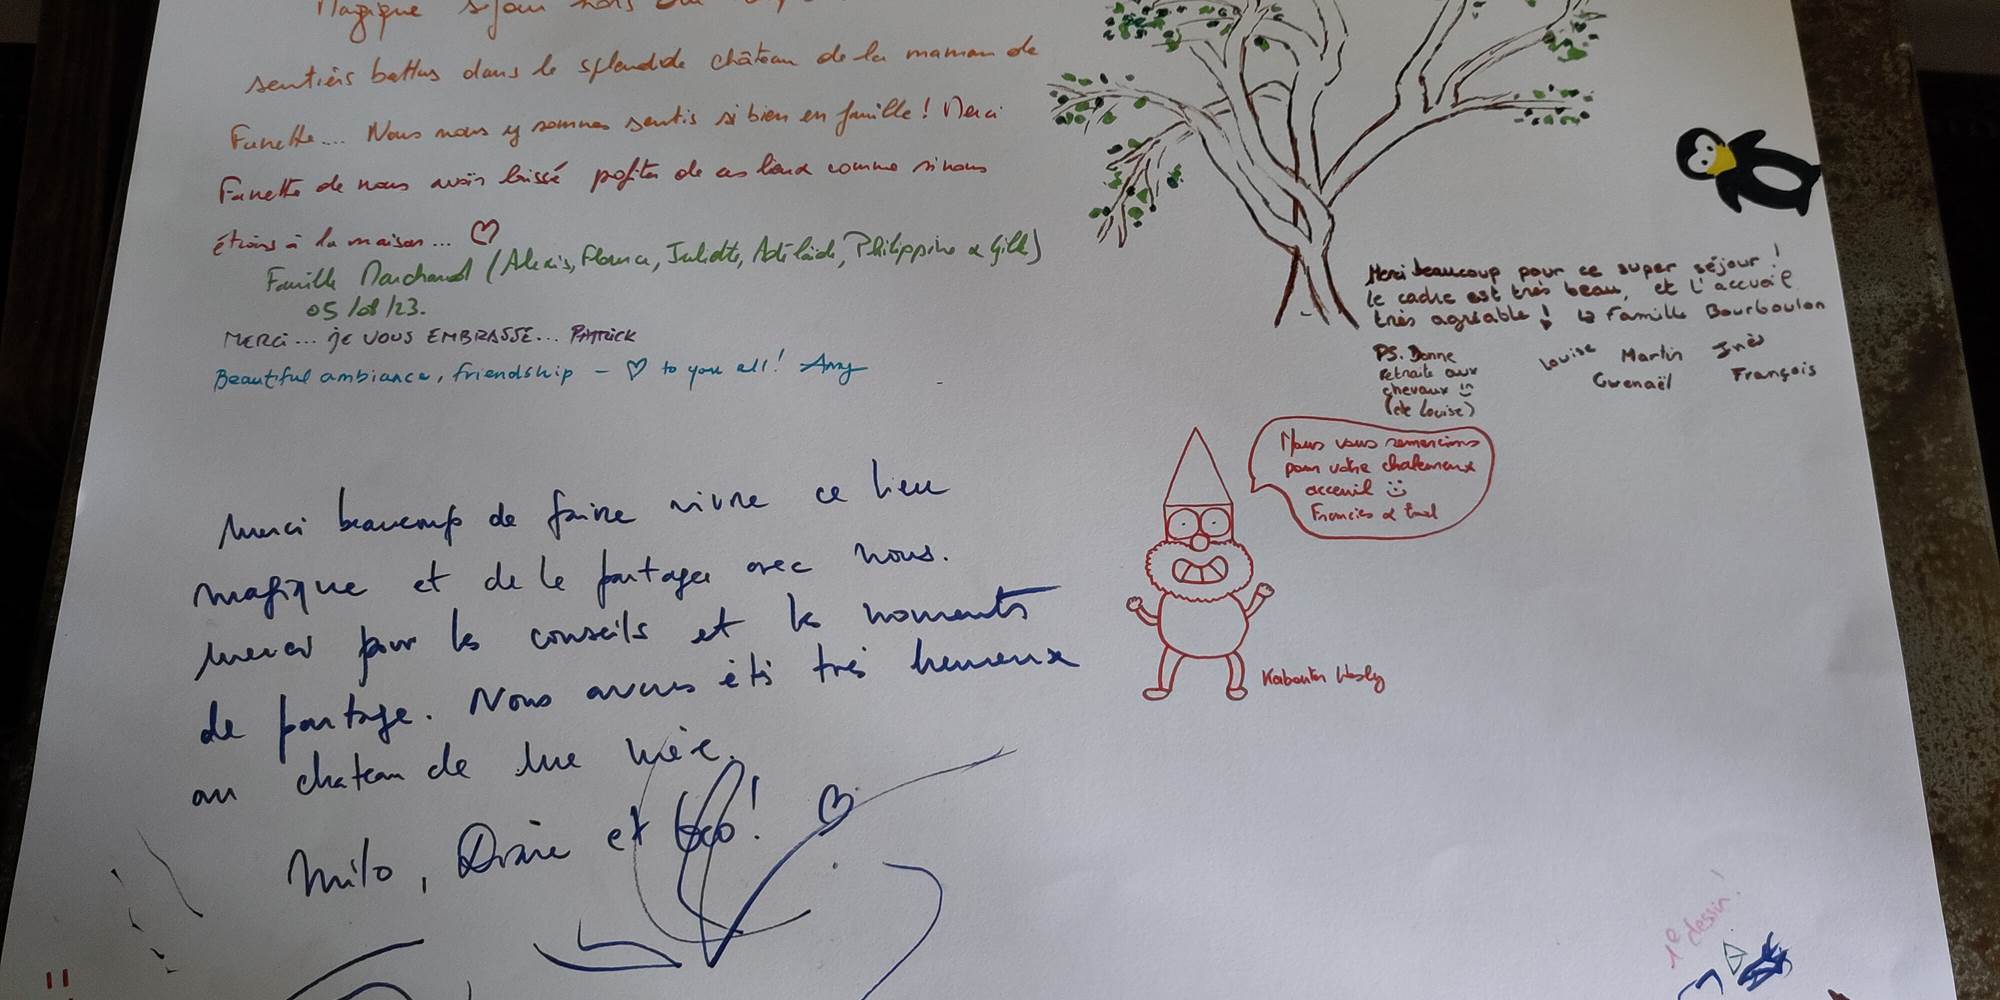 Magique séjour hors du
sentiers battus dans le splendide château de la maman de
Fanette.... Nous nous y sommes sentis si bien en famille! Merci
Fanette de nous avoir laissé profiter de ces lieux comme si nous
étions à la maison... ♡
Famille Marchand (Alexis, Florence, Juliette, Adélaïde, Philippine & Gilles)
05/08/23.
MERCI... JE VOUS EMBRASSE... PATRICK
Beautiful ambiance, friendship - ♡ to you all! Amy
Merci beaucoup de faire vivre ce lieu
magique et de le partager avec nous.
Merci pour les conseils et les moments
de partage. Nous avons été très heureux
au chateau de
Milo, et
Merci beaucoup pour ce super séjour!
le cadre est très beau, et l'accueil
très agréable! ↳ Famille Bourboulon
Louise Martin Inès
Gwenaël François
PS. Bonne
retraite aux
chevaux
(de Louise)
Nous vous remercions
pour votre chaleureux
acceuil
Francies &
Kabouter Wesley
1e dessin!